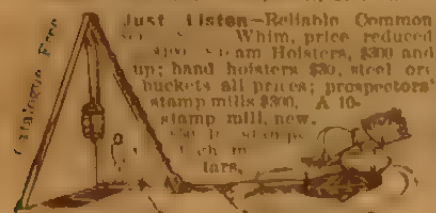 Catalogue Free
Just Listen—Reliable Common
Whim, price reduced
am Hoisters, $300 and
up; hand hoisters $30, steel ore
buckets all prices; prospectors'
stamp mills $300. A 10-
stamp mill, new.
lars.